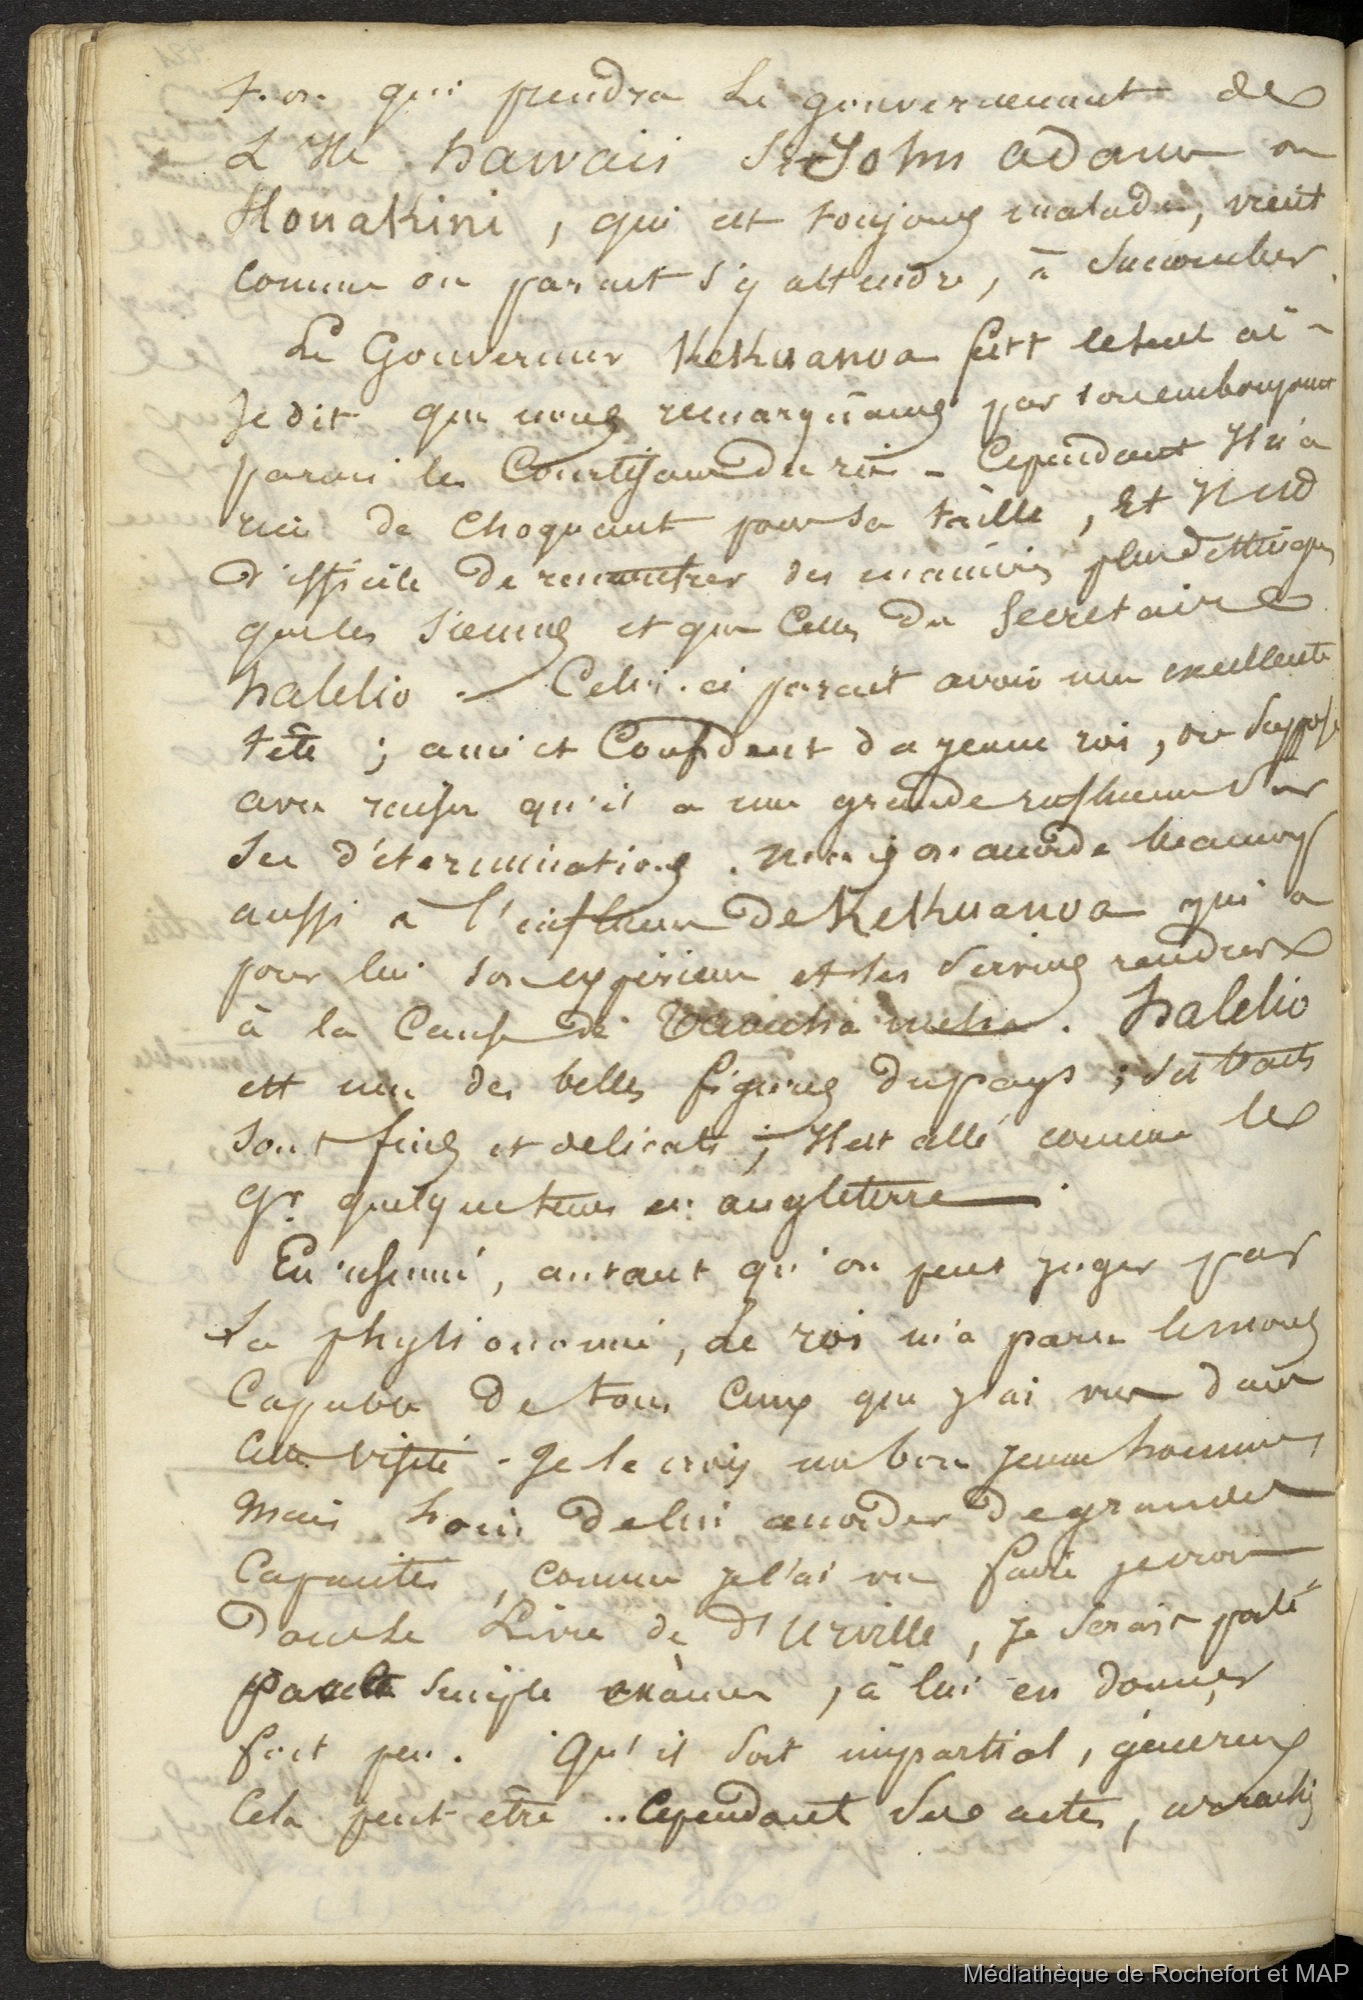 t-on qui prendra le gouvernement de
L'Ile hawaii si John adams ou
Kouakini, qui est toujours malade, vient
comme on parait s'y attendre, à succomber.
Le Gouverneur Kekuanoa fut le seul ai-
je dit que nous remarquâmes par son embonpoint
parmi les Courtisans du roi - Cependant Il n'a
rien de choquant pour sa taille, Et Il est
difficile de rencontrer des manières plus distinguées
que les siennes et que Celles du Secretaire
halelio - Celui-ci parait avoir une excellente
tête ; ami et Confident du jeune roi, on suppose
avec raison qu'il a une grande influence sur
ses d'éterminations. Mais on accorde beaucoup
aussi à l'influence de Kekuanoa qui a
pour lui son expérience et les services rendus
à la Cause de Tamehameha. halelio
est une des belles figures du pays ; ses traits
sont fins et delicats ; Il est allé comme le
Gr quelque tems en angleterre.
En résumé, autant qu'on peut juger par
la physionomie, le roi m'a paru le moins
Capable de tous Ceux que j'ai vus dans
Cette visite - Je le crois un bon jeune homme,
Mais loin de lui accorder de grandes
Capacités, comme je l'ai vu faire je crois
dans le Livre de d'Urville, je serais porté
par le simple examen, à lui en donner
fort peu. Qu'il soit impartial, généreux
Cela peut être .. Cependant ses actes, arrachés